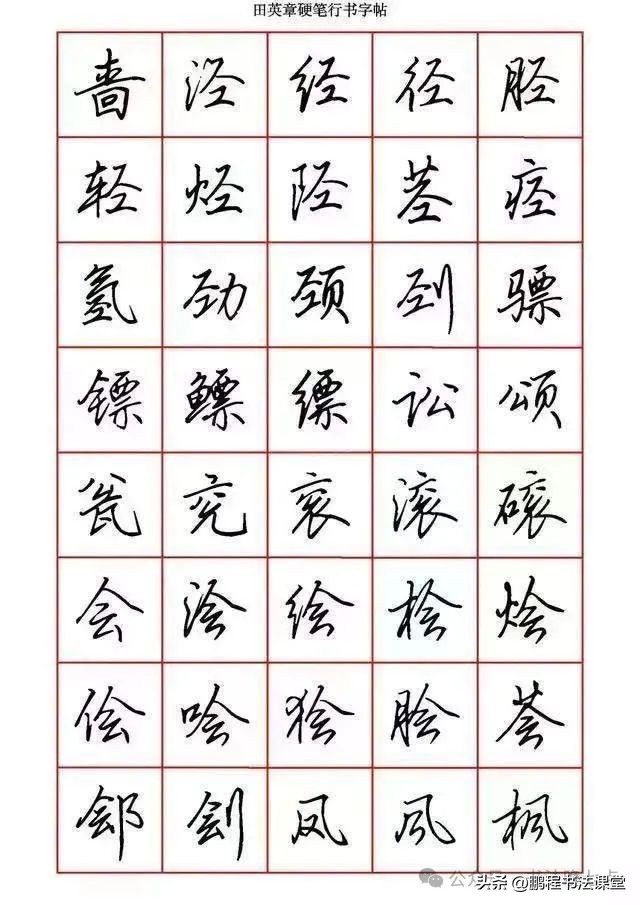 田英章硬笔行书字帖
啬 泾 经 径 胫
轻 烃 陉 茎 痉
氢 劲 颈 刭 骠
镖 鳔 缥 讼 颂
瓮 兖 衮 滚 磙
会 浍 绘 桧 烩
侩 哙 狯 脍 荟
郐 刽 凤 风 枫
头条 @鹏程书法课堂